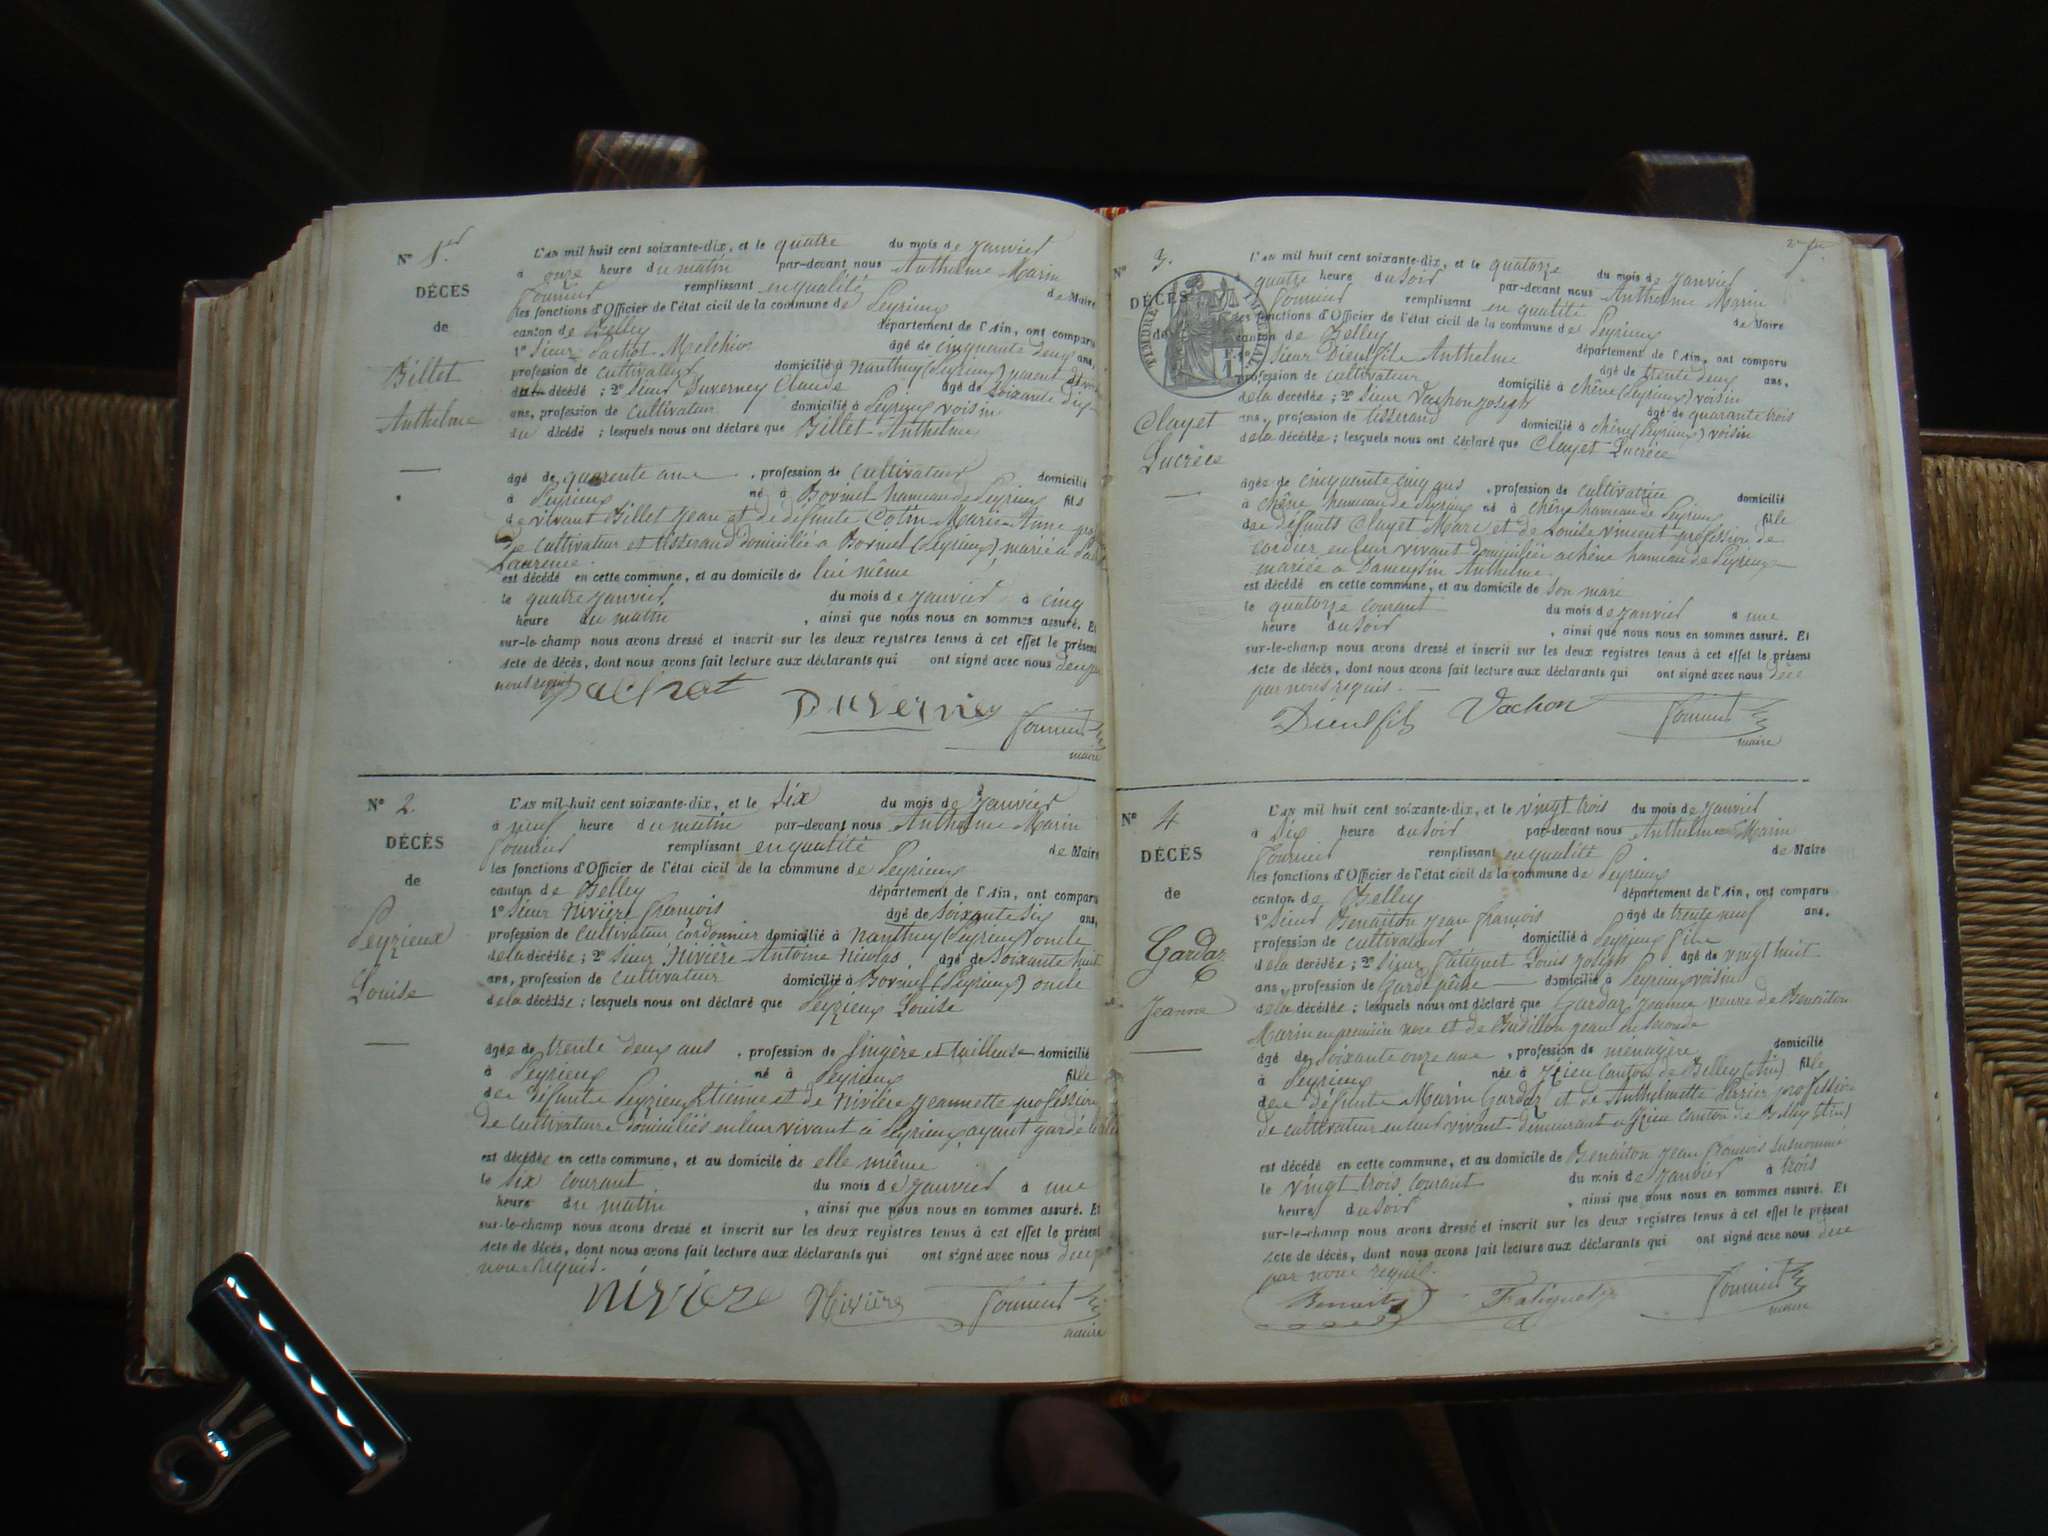 Nº 1.er
DÉCÈS
de
Billet
Anthelme
L'an mil huit cent soixante-dix, et le quatre du mois de Janvier
à onze heure du matin par-devant nous Anthelme Marin
Fournier remplissant en qualité de Maire
les fonctions d'Officier de l'état civil de la commune de Peyrieux
canton de Belley département de l'Ain, ont comparu
1º Sieur Pachot Melchior âgé de cinquante deux ans,
profession de cultivateur domicilié à Nanthuy (Peyrieux) parent
du décédé ; 2º Sieur Duverney Claude âgé de soixante dix
ans, profession de cultivateur domicilié à Peyrieux voisin
du décédé ; lesquels nous ont déclaré que Billet Anthelme
âgé de quarente ans, profession de cultivateur domicilié
à Peyrieux né à Bovinel hameau de Peyrieux fils
de vivant Billet Jean et de défunte Cottin Marie Anne
de cultivateur et tisserand domiciliée a Bovinel (Peyrieux), marié à
Laurence.
est décédé en cette commune, et au domicile de lui même
le quatre janvier du mois de janvier à cinq
heure du matin, ainsi que nous nous en sommes assuré. Et
sur-le-champ nous avons dressé et inscrit sur les deux registres tenus à cet effet le présent
acte de décès, dont nous avons fait lecture aux déclarants qui ont signé avec nous de ce par
nous requis
Pachot Duverney Fournier
maire
Nº 2
DÉCÈS
de
Peyrieux
Louise
L'an mil huit cent soixante-dix, et le six du mois de Janvier
à neuf heure du matin par-devant nous Anthelme Marin
Fournier remplissant en qualité de Maire
les fonctions d'Officier de l'état civil de la commune de Peyrieux
canton de Belley département de l'Ain, ont comparu
1º Sieur Nivière François âgé de soixante six ans,
profession de cultivateur cordonnier domicilié à Nanthuy (Peyrieux) oncle
de la décédée ; 2º Sieur Nivière Antoine Nicolas âgé de soixante huit
ans, profession de cultivateur domicilié à Bovinel (Peyrieux) oncle
de la décédée ; lesquels nous ont déclaré que Peyrieux Louise
âgée de trente deux ans, profession de lingère et tailleuse domicilié
à Peyrieux né à Peyrieux fille
de défunts Peyrieux Etienne et de Nivière Jeannette profession
de cultivateurs domiciliés en leur vivant à Peyrieux ayant gardé le
est décédée en cette commune, et au domicile de elle même
le six courant du mois de janvier à une
heure du matin, ainsi que nous nous en sommes assuré. Et
sur-le-champ nous avons dressé et inscrit sur les deux registres tenus à cet effet le présent
acte de décès, dont nous avons fait lecture aux déclarants qui ont signé avec nous de ce par
nous requis.
Nivière Nivière Fournier
maire
Nº 3.
DÉCÈS
de
TIMBRE IMPERIAL
Clayet
Lucrèce
L'an mil huit cent soixante-dix, et le quatorze du mois de Janvier
à quatre heure du soir par-devant nous Anthelme Marin
Fournier remplissant en qualité de Maire
les fonctions d'Officier de l'état civil de la commune de Peyrieux
canton de Belley département de l'Ain, ont comparu
1º Sieur Dieulfils Anthelme âgé de trente deux ans,
profession de cultivateur domicilié à Chêne (Peyrieux) voisin
de la décédée ; 2º Sieur Vachon Joseph âgé de quarante trois
ans, profession de tisserand domicilié à Chêne (Peyrieux) voisin
de la décédée ; lesquels nous ont déclaré que Clayet Lucrèce
âgée de cinquante cinq ans, profession de cultivatrice domicilié
à Chêne hameau de Peyrieux né à Chêne hameau de Peyrieux fille
de défunts Clayet Marc et de Louise Vincent profession de
cordier en leur vivant domiciliée a Chêne hameau de Peyrieux
mariée a Dameysin Anthelme.
est décédé en cette commune, et au domicile de son mari
le quatorze courant du mois de janvier à une
heure du soir, ainsi que nous nous en sommes assuré. Et
sur-le-champ nous avons dressé et inscrit sur les deux registres tenus à cet effet le présent
acte de décès, dont nous avons fait lecture aux déclarants qui ont signé avec nous de ce
par nous requis.
Dieulfils Vachon Fournier
maire
Nº 4
DÉCÈS
de
Gardaz
Jeanne
L'an mil huit cent soixante-dix, et le vingt trois du mois de Janvier
à six heure du soir par-devant nous Anthelme Marin
Fournier remplissant en qualité de Maire
les fonctions d'Officier de l'état civil de la commune de Peyrieux
canton de Belley département de l'Ain, ont comparu
1º Sieur Benaiton Jean François âgé de trente neuf ans,
profession de cultivateur domicilié à Peyrieux fils
de la décédée ; 2º Sieur Fatiguet Louis Joseph âgé de vingt huit
ans, profession de Garde pêche domicilié à Peyrieux voisin
de la décédée ; lesquels nous ont déclaré que Gardaz Jeanne veuve de Benaiton
Marin en premiere noce et de Budillon Jean en seconde
âgé de soixante onze ans, profession de ménagère domicilié
à Peyrieux née à Izieu Canton de Belley (Ain) fille
de défunts Marin Gardaz et de Anthelmette Perier profession
de cultivateur en leur vivant demeurant a Izieu canton de Belley (Ain)
est décédé en cette commune, et au domicile de Benaiton Jean François susnommé
le vingt trois courant du mois de Janvier à trois
heure du soir, ainsi que nous nous en sommes assuré. Et
sur-le-champ nous avons dressé et inscrit sur les deux registres tenus à cet effet le présent
acte de décès, dont nous avons fait lecture aux déclarants qui ont signé avec nous de ce
par nous requis.
Benaiton Fatiguet Fournier
maire